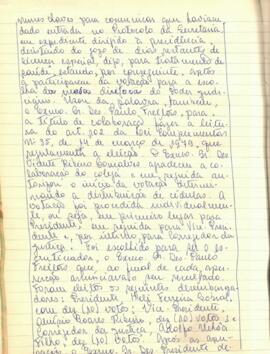 para comunicar que haviam
dado entrada no Protocolo da Secretaria
um expediente dirigido à Presidência
desistindo do gozo de dias restantes de
licença especial, digo, para tratamento de
saúde, estando, por conseguinte, aptos
a participarem da votação para a esco-
lha da mesa diretora do Poder Judi-
ciário. Usou da palavra,
o Exmo. Sr. Des. Paulo Freitas, para
a título de colaboração fazer a leitu-
ra do art. 102 da Lei Complementar
nº 35, de 14 de março de 1979, que
regulamenta a eleição. O Exmo. Sr. Des.
Vicente Ribeiro Gonçalves agradeceu a co-
laboração do colega e em seguida au-
torizou o início da votação determi-
nando a distribuição de cédulas. A
votação foi procedida individualmen-
te, ou seja, em primeiro lugar para
Presidente, em seguida para Vice-Presi-
dente e, por último para Corregedor da
Justiça. Foi escolhido para ser o es-
crutinador, o Exmo. Sr. Des. Paulo
Freitas que, ao final de cada apu-
ração anunciava seu resultado.
Foram eleitos os seguintes desembarga-
dores: Presidente, Heli Ferreira Sobral,
com dez (10) votos; Vice-Presidente,
Augusto Ribeiro, dez (10) votos e
Corregedor da Justiça, Adolfo Uchôa
Filho, dez (10) votos. Após as
o Exmo. Sr. Des. Presidente de